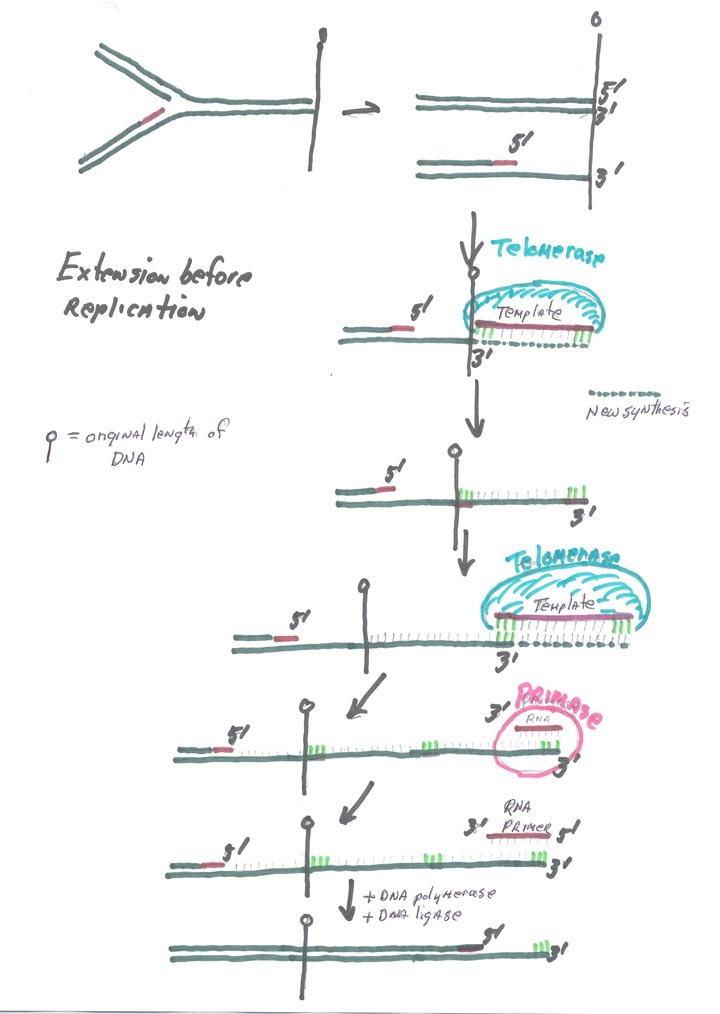 5'
3'
5'
3'
Telomerase
Extension before
Replication
5'
Template
3'
New synthesis
= original length of
DNA
5'
3'
Telomerase
Template
5'
3'
Primase
3'
RNA
5'
3'
RNA
3' PRIMER 5'
5'
3'
+ DNA polymerase
+ DNA ligase
5'
3'